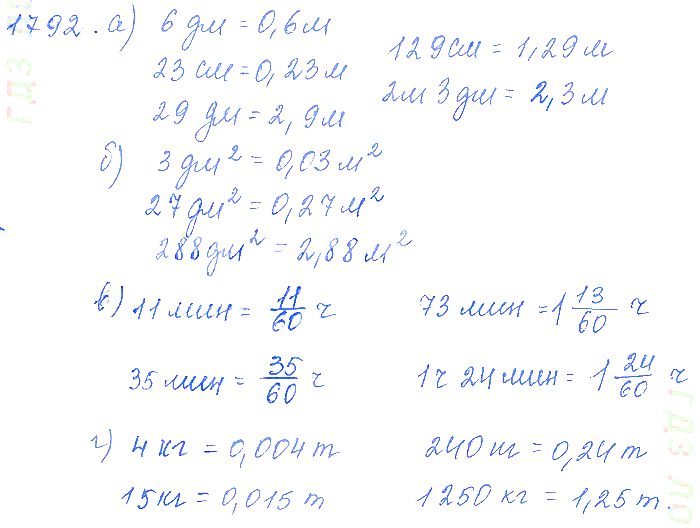 1792. а) 6 дм = 0,6 м
23 см = 0,23 м
29 дм = 2,9 м
129 см = 1,29 м
2м 3 дм = 2,3 м
б) 3 дм² = 0,03 м²
27 дм² = 0,27 м²
288 дм² = 2,88 м²
в) 11 мин = 11/60 ч
73 мин = 1 13/60 ч
35 мин = 35/60 ч
1ч 24 мин = 1 24/60 ч
г) 4 кг = 0,004 т
240 кг = 0,24 т
15 кг = 0,015 т
1250 кг = 1,25 т.
гдз по